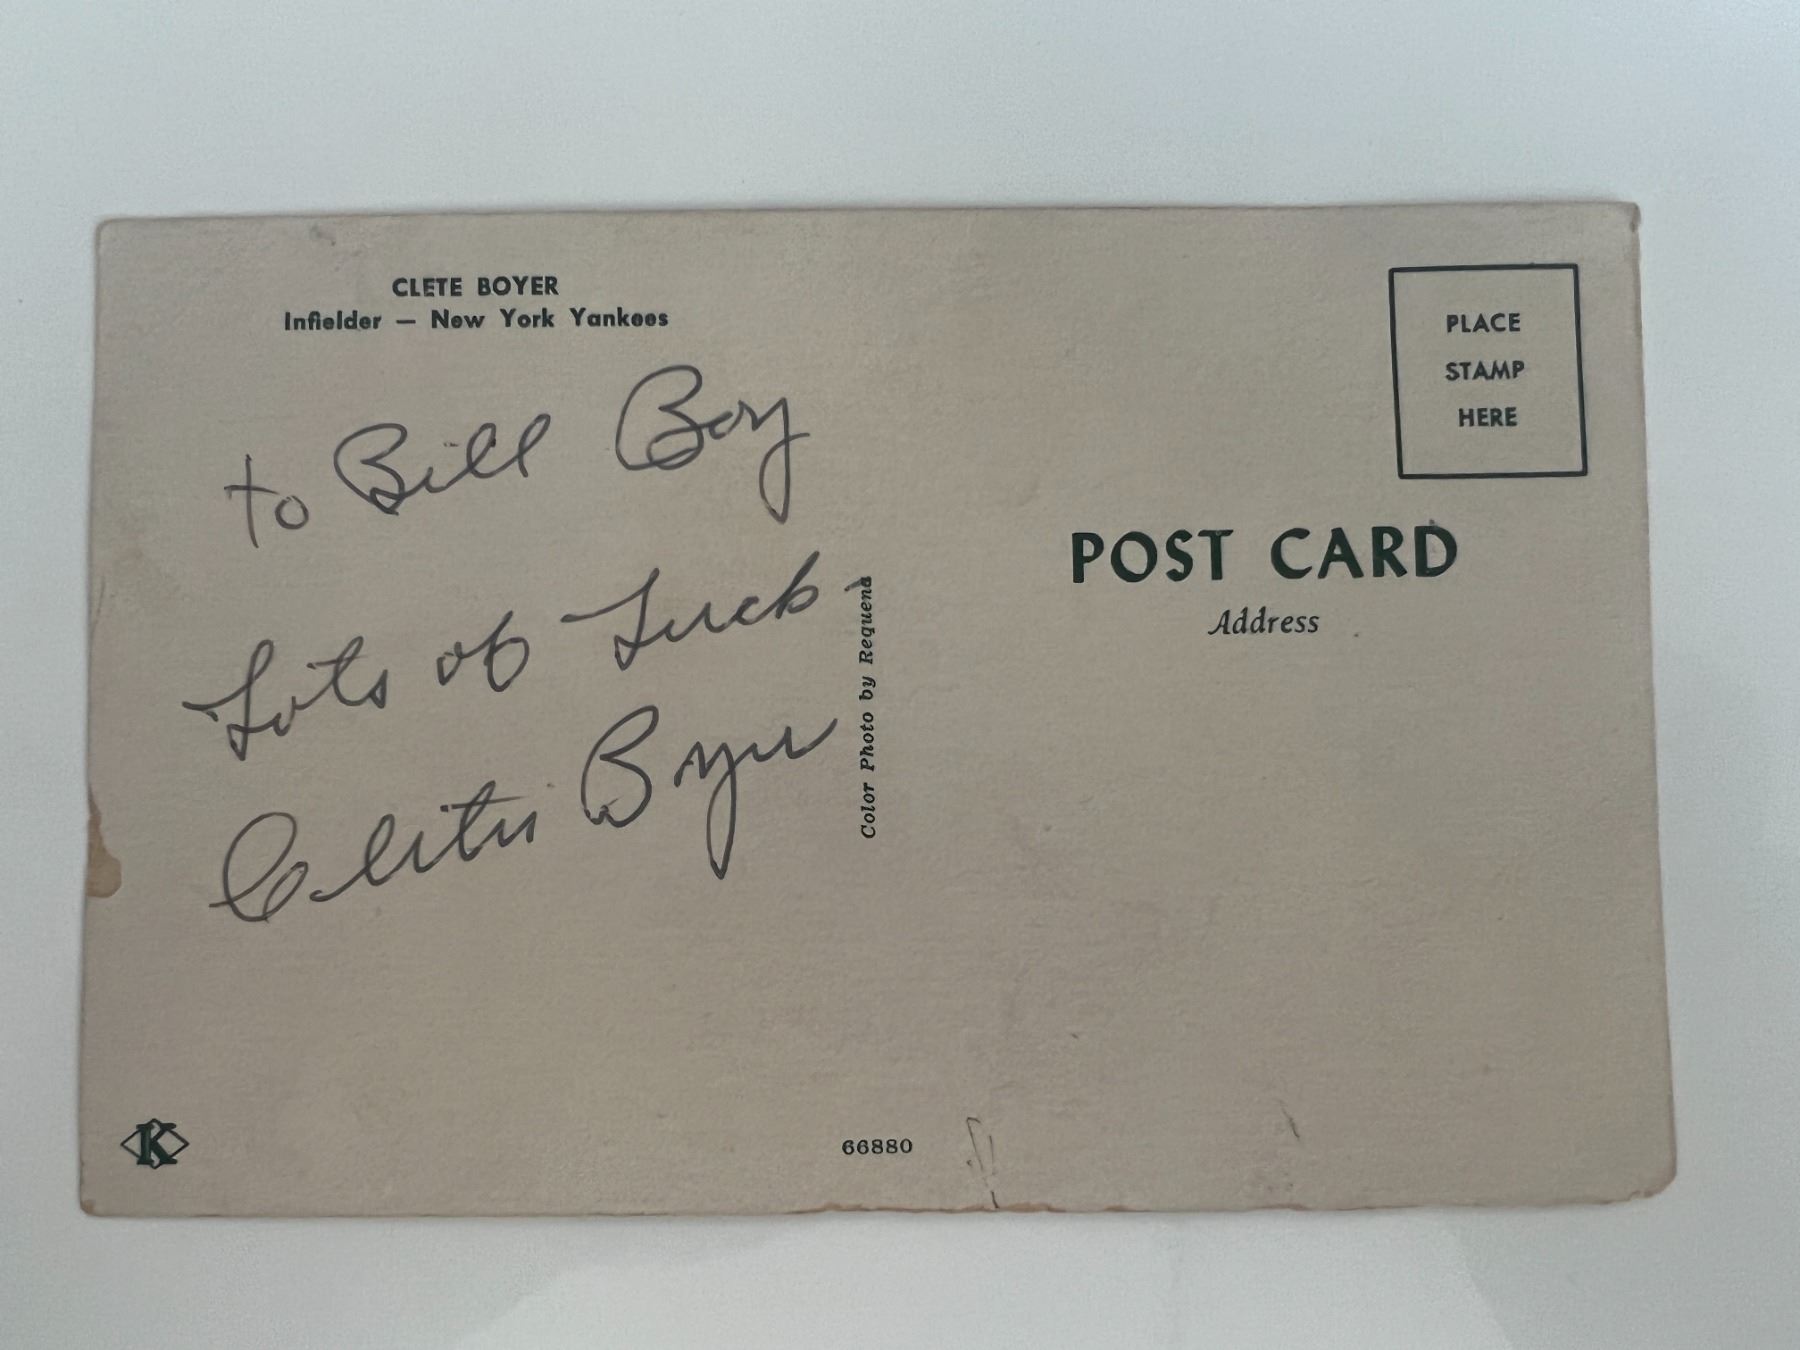 CLETE BOYER
Infielder — New York Yankees
to Bill Boy
Lots of Luck
Cletis Boyer
Color Photo by Requena
PLACE
STAMP
HERE
POST CARD
Address
K
66880